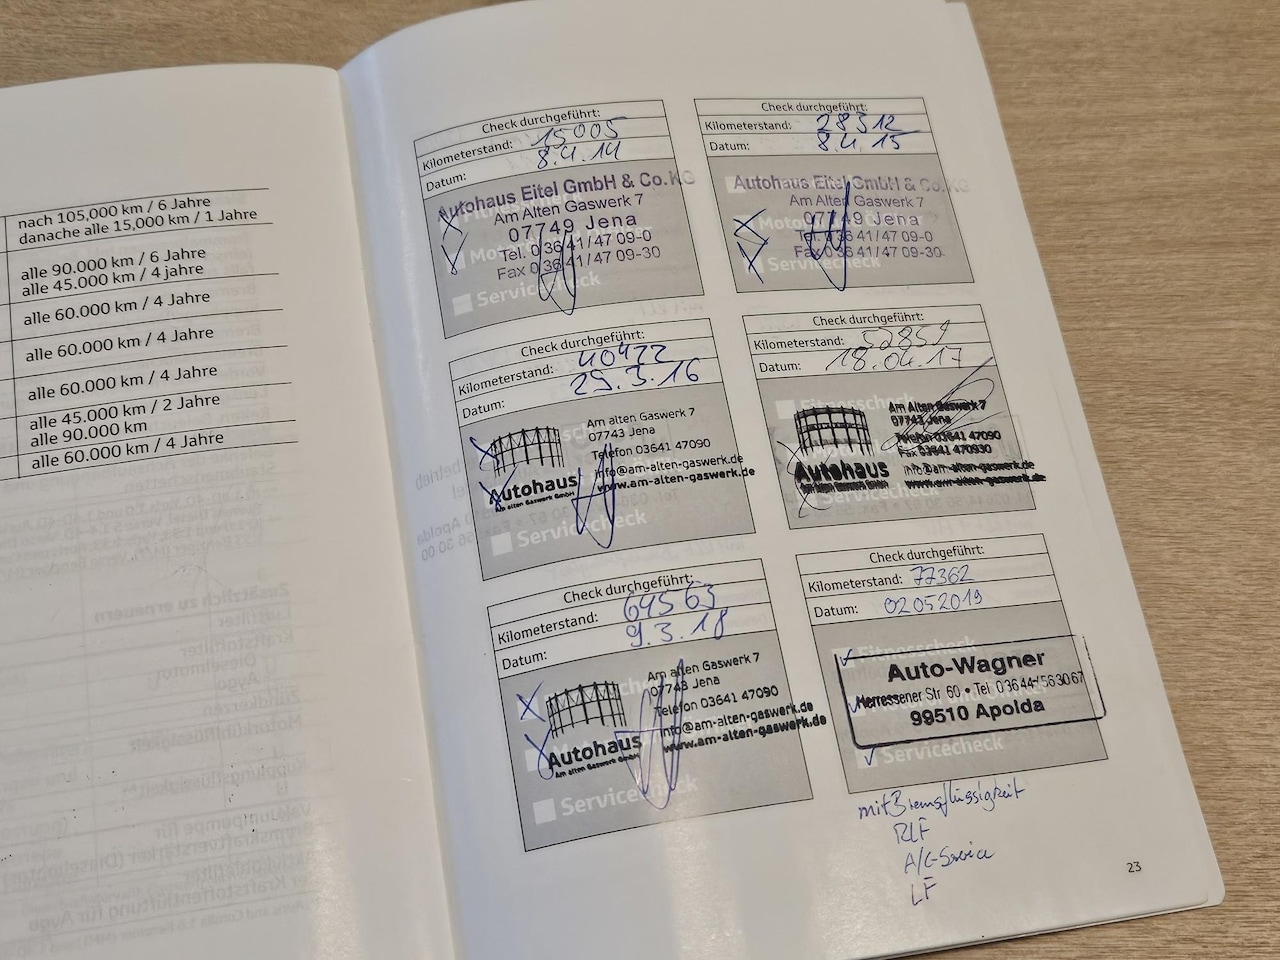 nach 105,000 km / 6 Jahre
danache alle 15,000 km / 1 Jahre
alle 90.000 km / 6 Jahre
alle 45.000 km / 4 jahre
alle 60.000 km / 4 Jahre
alle 60.000 km / 4 Jahre
alle 60.000 km / 4 Jahre
alle 45.000 km / 2 Jahre
alle 90.000 km
alle 60.000 km / 4 Jahre
Check durchgeführt:
Kilometerstand: 15005
Datum: 8.4.14
Autohaus Eitel GmbH & Co. KG
Am Alten Gaswerk 7
07749 Jena
Tel. 0 36 41 / 47 09-0
Fax 0 36 41 / 47 09-30
Servicecheck
Check durchgeführt:
Kilometerstand: 28312
Datum: 8.4.15
Autohaus Eitel GmbH & Co. KG
Am Alten Gaswerk 7
07749 Jena
Tel. 0 36 41 / 47 09-0
Fax 0 36 41 / 47 09-30
Servicecheck
Check durchgeführt:
Kilometerstand: 40422
Datum: 29.3.16
Am alten Gaswerk 7
07743 Jena
Telefon 03641 47090
info@am-alten-gaswerk.de
www.am-alten-gaswerk.de
Autohaus
Am alten Gaswerk GmbH
Servicecheck
Check durchgeführt:
Kilometerstand: 52851
Datum: 18.04.17
Fitnesscheck
Am Alten Gaswerk 7
07743 Jena
Telefon 03641 47090
Fax 03641 470930
info@am-alten-gaswerk.de
www.am-alten-gaswerk.de
Autohaus
Am alten Gaswerk GmbH
Servicecheck
Check durchgeführt:
Kilometerstand: 64563
Datum: 9.3.18
Am alten Gaswerk 7
07743 Jena
Telefon 03641 47090
info@am-alten-gaswerk.de
www.am-alten-gaswerk.de
Autohaus
Am alten Gaswerk GmbH
Servicecheck
Check durchgeführt:
Kilometerstand: 77362
Datum: 02052019
Fitnesscheck
Auto-Wagner
Herressener Str 60 • Tel 03644-563067
99510 Apolda
Servicecheck
mit Bremsflüssigkeit
RLF
A/C-Service
LF
23